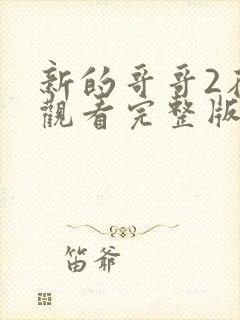 新的哥哥2
觀看完整版
笛爷